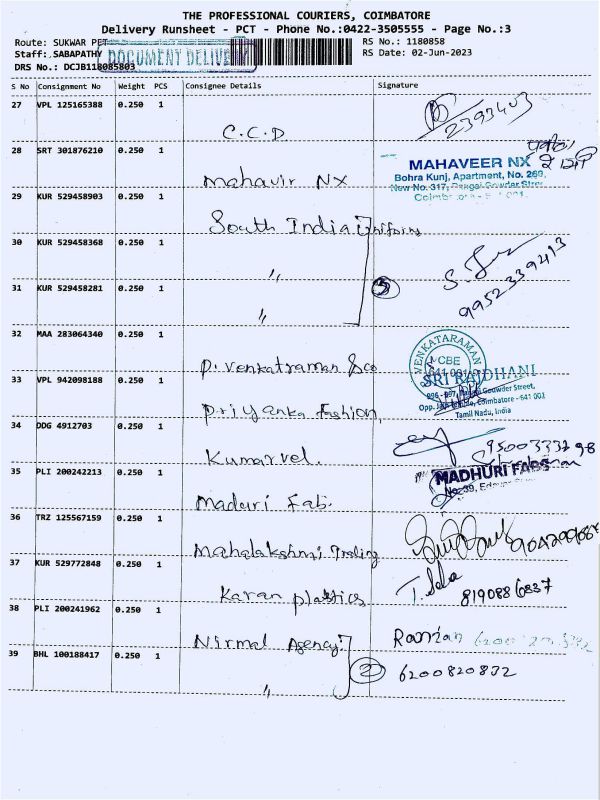 THE PROFESSIONAL COURIERS, COIMBATORE
Delivery Runsheet - PCT - Phone No.:0422-3505555 - Page No.:3
Route: SUKWAR PET RS No.: 1180858
Staff: SABAPATHY DOCUMENT DELIVE RS Date: 02-Jun-2023
DRS No.: DCJB118085803
S No Consignment No Weight PCS Consignee Details Signature
27 VPL 125165388 0.250 1
C.C.D 2393403
28 SRT 301876210 0.250 1
MAHAVEER NX
Bohra Kunj, Apartment, No. 269,
Mahavir NX New No. 317,
29 KUR 529458903 0.250 1
South India Uniforms
30 KUR 529458368 0.250 1
"
31 KUR 529458281 0.250 1 3
" 9952339413
32 MAA 283064340 0.250 1
VENKATARAMAN
CBE
P. Venkatraman & co
SRI RAJDHANI
33 VPL 942098188 0.250 1 Gouwder Street,
Opp. Coimbatore - 641 001
Priyanka Fashion, Tamil Nadu, India
34 DDG 4912703 0.250 1
9500333298
Kumarvel.
35 PLI 200242213 0.250 1 MADHURI FABS
No.39,
Maduri Fab.
36 TRZ 125567159 0.250 1
Mahalakshmi Trading
37 KUR 529772848 0.250 1
Karan plastics 8190886837
38 PLI 200241962 0.250 1
Nirmal Agency
39 BHL 100188417 0.250 1 2 6200820832
"